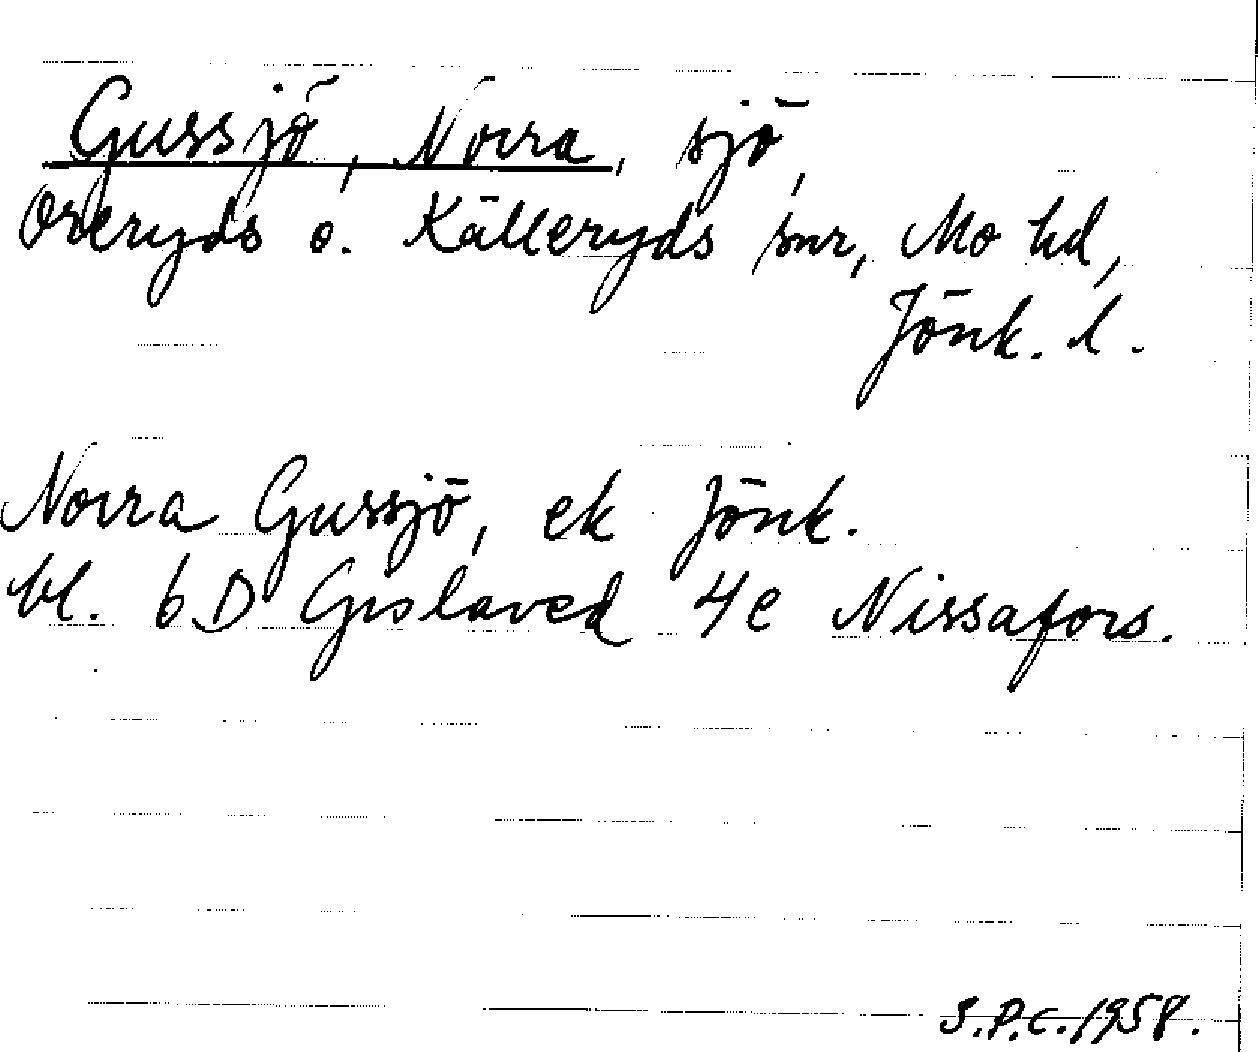 Gussjö, Norra, sjö,
Öreryds o. Källeryds snr, Mo hd,
Jönk. l.
Norra Gussjö, ek Jönk.
bl. 6D Gislaved 4e Nissafors.
S.P.C. 1958.